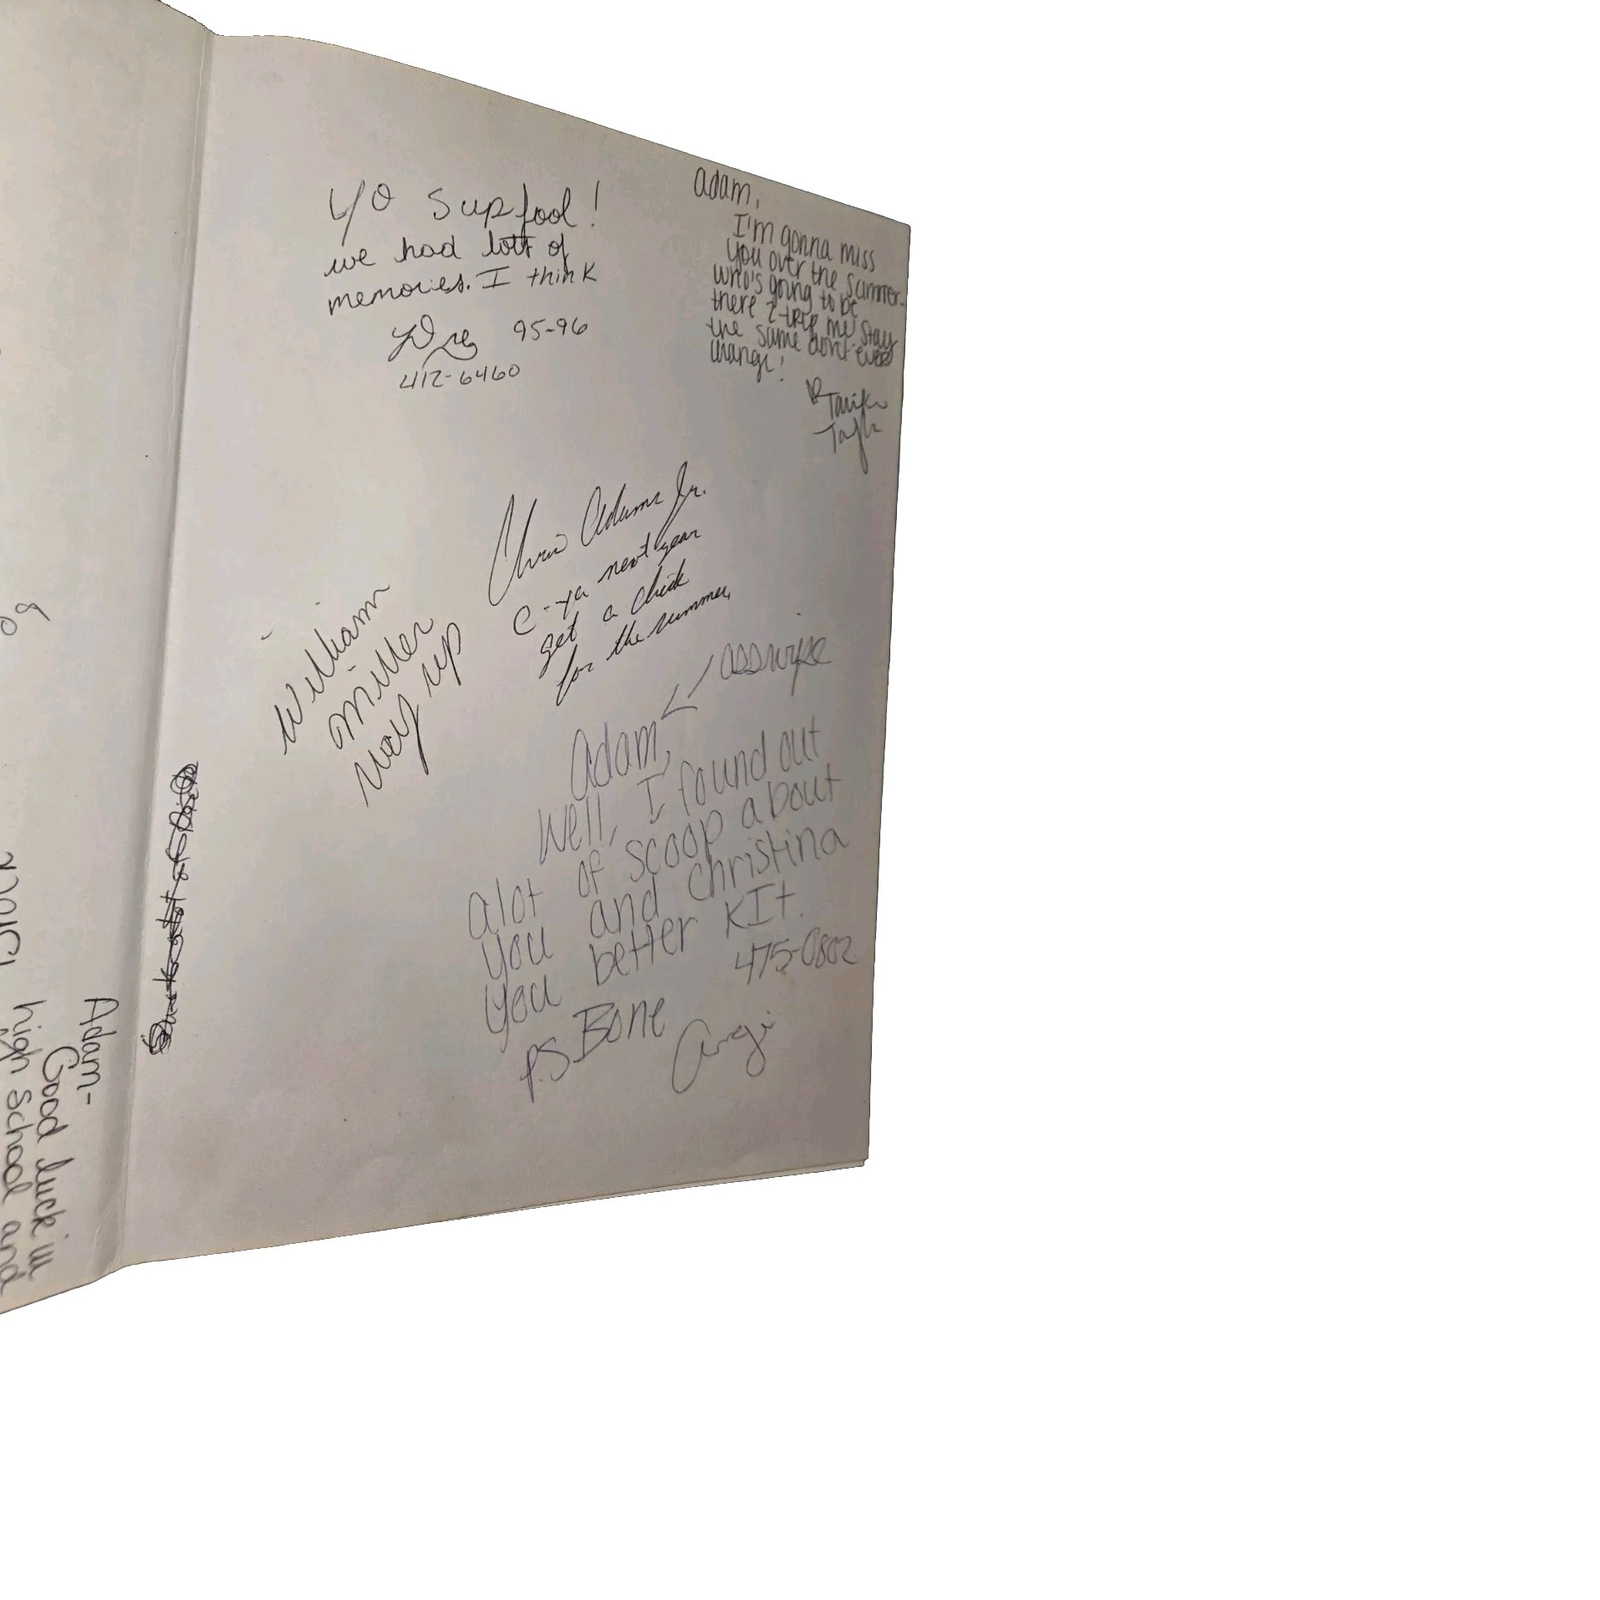 Yo Sup fool!
we had lots of
memories. I think
Dre 95-96
412-6460
Adam,
I'm gonna miss
you over the summer.
who's going to be
there 2 trip me. Stay
the same don't ever
change!
Chris Adams Jr.
C-ya next year
get a chick
for the summer,
William
Miller
Way up
asswipe
Adam,
Well, I found out
alot of scoop about
you and Christina
you better KIt.
475-0802
P.S. Bone
Angi
Adam-
Good luck in
high school and